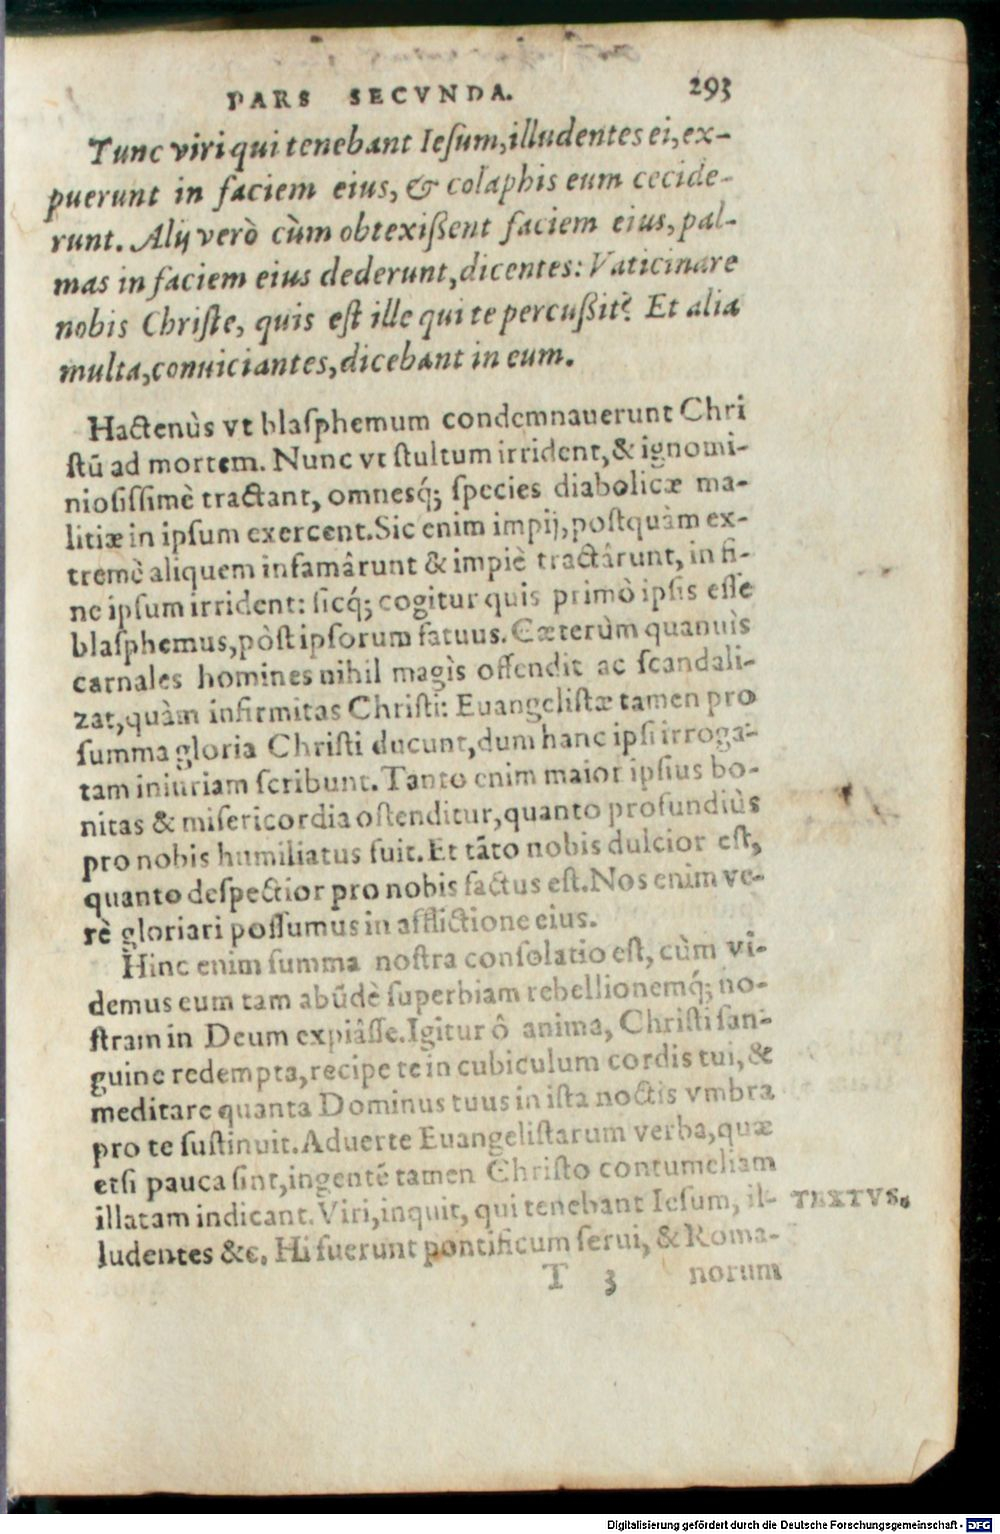 PARS SECVNDA. 293
Tunc viri qui tenebant Iesum, illudentes ei, ex-
puerunt in faciem eius, & colaphis eum cecide-
runt. Alij verò cùm obtexißent faciem eius, pal-
mas in faciem eius dederunt, dicentes: Vaticinare
nobis Christe, quis est ille qui te percußit? Et alia
multa, conuiciantes, dicebant in eum.
Hactenùs vt blasphemum condemnauerunt Chri
stū ad mortem. Nunc vt stultum irrident, & ignomi-
niosissimè tractant, omnesq́; species diabolicæ ma-
litiæ in ipsum exercent. Sic enim impij, postquàm ex-
tremè aliquem infamârunt & impiè tractârunt, in fi-
ne ipsum irrident: sicq́; cogitur quis primò ipsis esse
blasphemus, pòst ipsorum fatuus. Cæterùm quanuìs
carnales homines nihil magìs offendit ac scandali-
zat, quàm infirmitas Christi: Euangelistæ tamen pro
summa gloria Christi ducunt, dum hanc ipsi irroga-
tam iniuriam scribunt. Tanto enim maior ipsius bo-
nitas & misericordia ostenditur, quanto profundiùs
pro nobis humiliatus fuit. Et tāto nobis dulcior est,
quanto despectior pro nobis factus est. Nos enim ve-
rè gloriari possumus in afflictione eius.
Hinc enim summa nostra consolatio est, cùm vi-
demus eum tam abūdè superbiam rebellionemq́; no-
stram in Deum expiâsse. Igitur ô anima, Christi san-
guine redempta, recipe te in cubiculum cordis tui, &
meditare quanta Dominus tuus in ista noctis vmbra
pro te sustinuit. Aduerte Euangelistarum verba, quæ
etsi pauca sint, ingentē tamen Christo contumeliam
illatam indicant. Viri, inquit, qui tenebant Iesum, il- TEXTVS.
ludentes &c. Hi fuerunt pontificum serui, & Roma-
T 3 norum
Digitalisierung gefördert durch die Deutsche Forschungsgemeinschaft - DFG